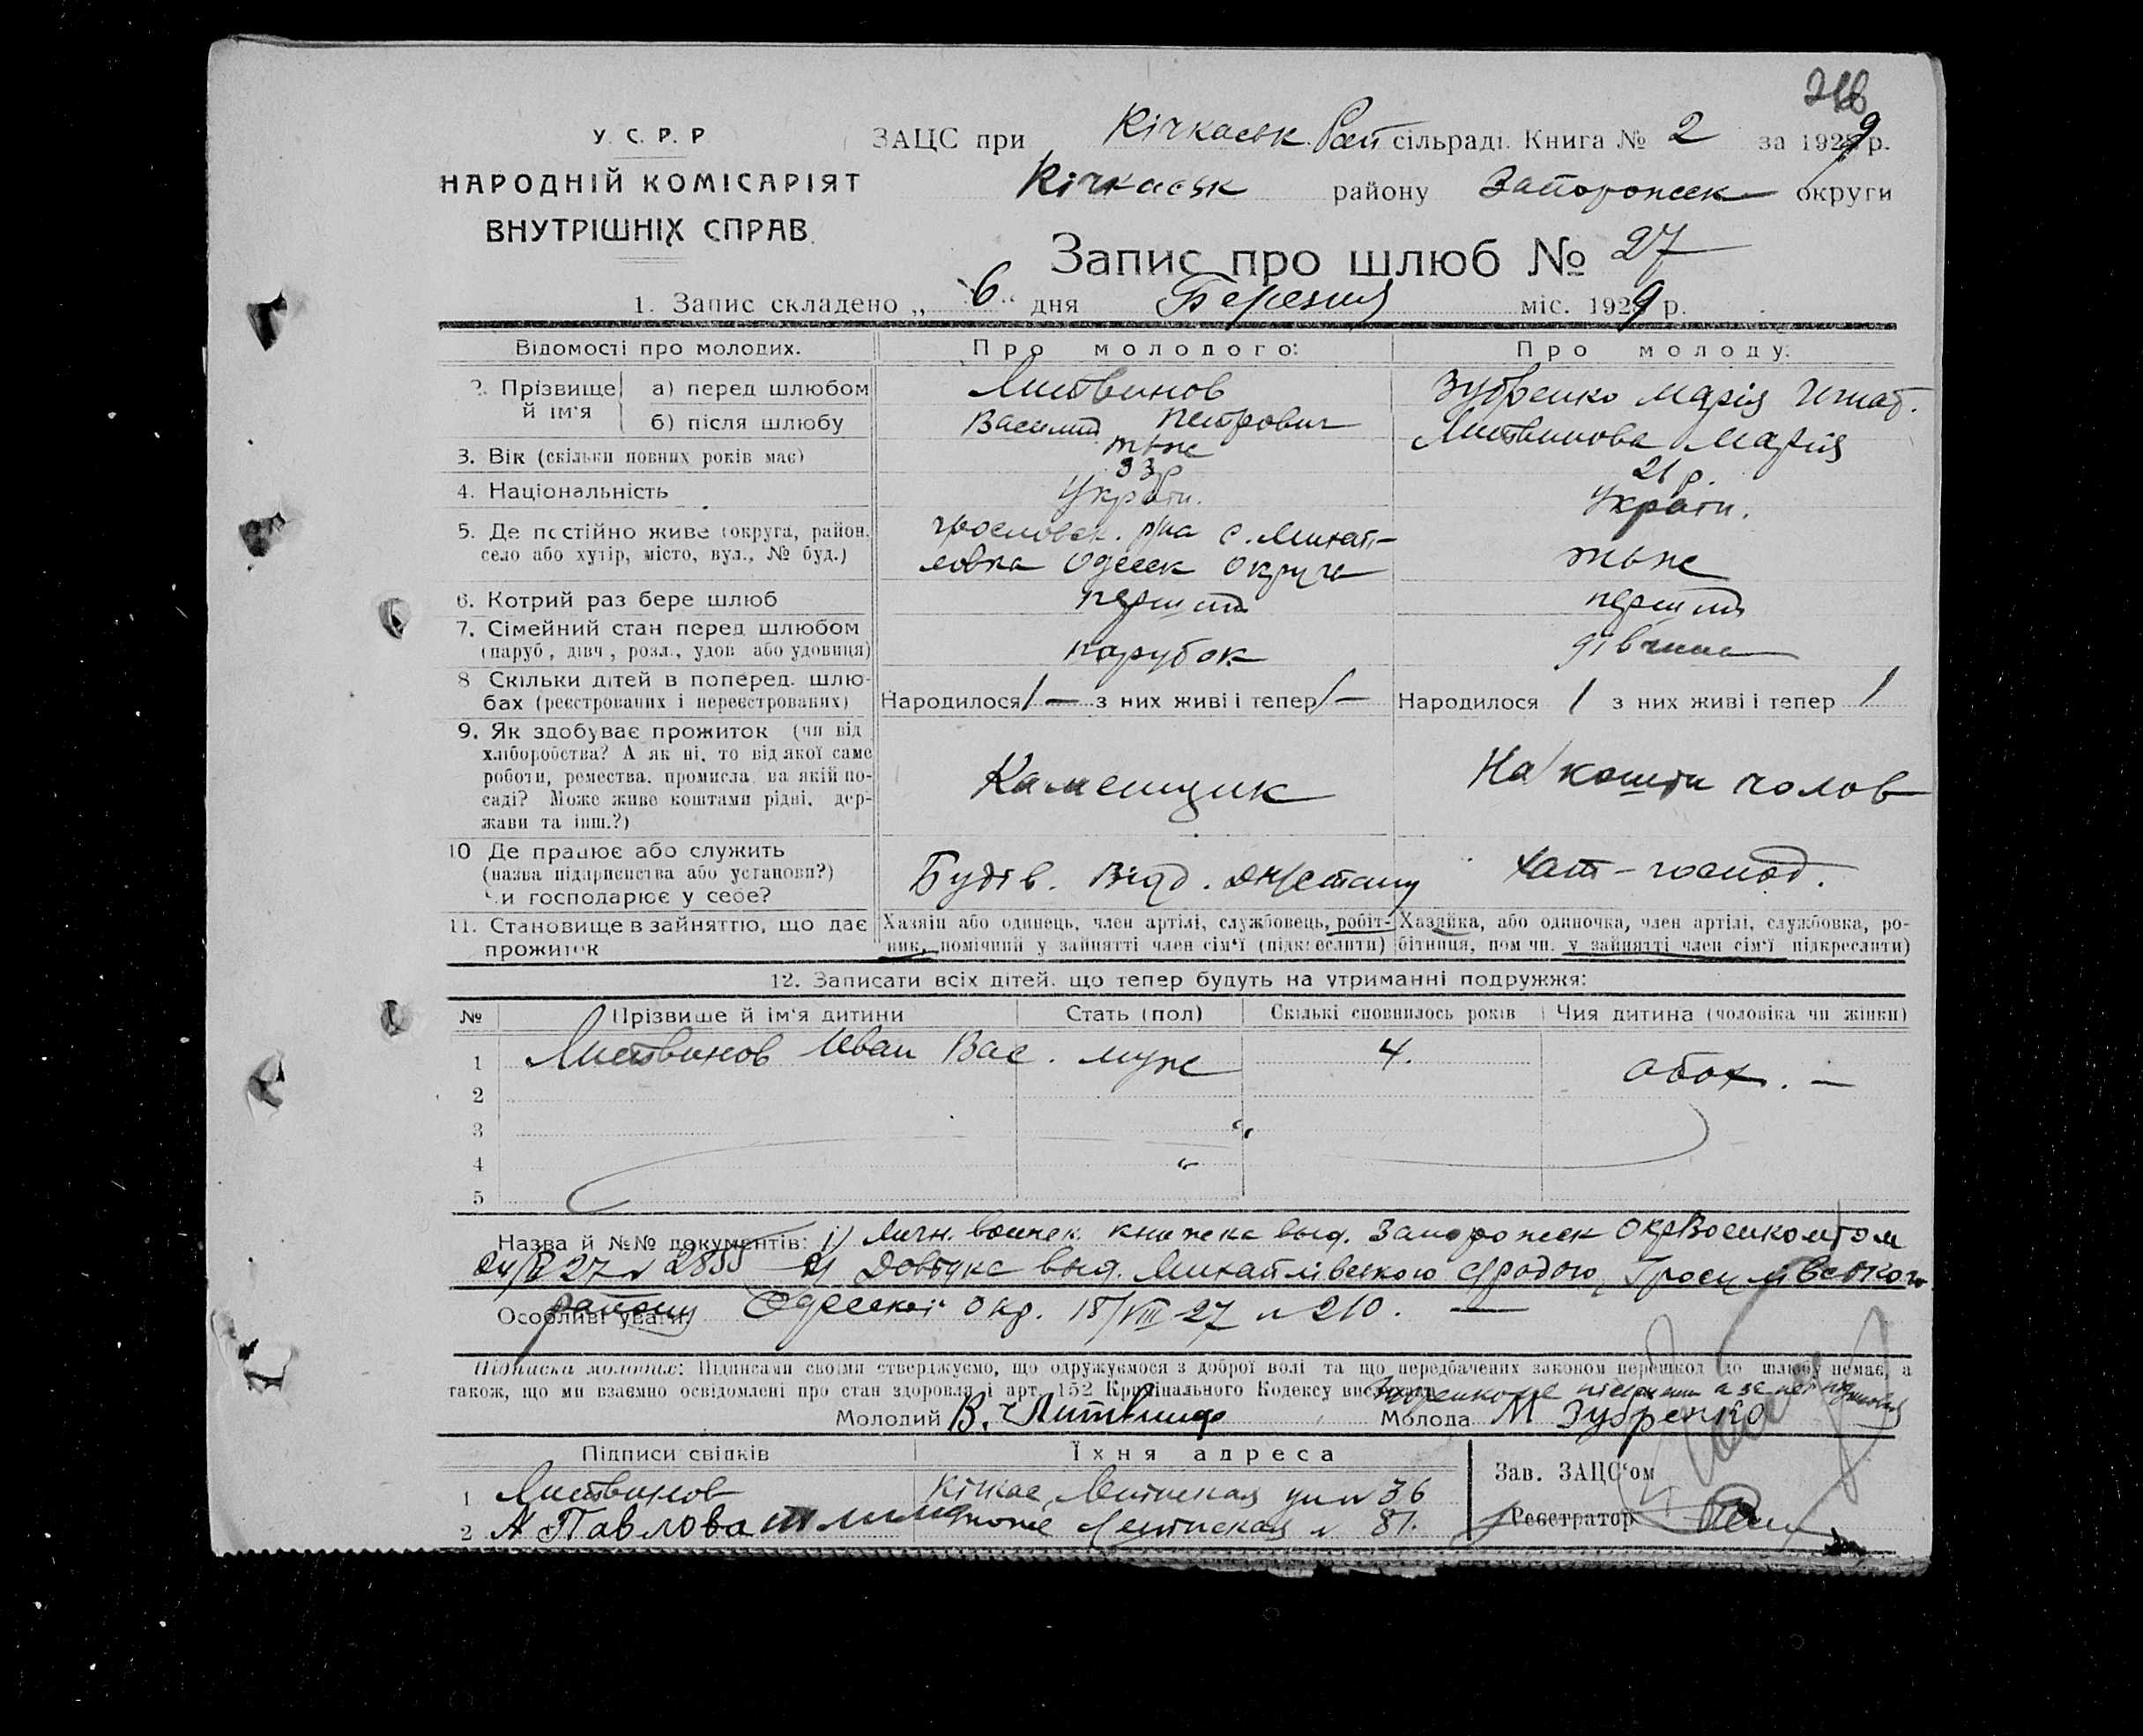 У. С. Р. Р
НАРОДНІЙ КОМІСАРІЯТ
ВНУТРІШНІХ СПРАВ.
ЗАЦС при Кічкаськ. сільраді. Книга № 2 за 1929 р.
Кічкаськ району Запорожск округи
Запис про шлюб № 27
1. Запис складено „ 6 “ дня Березня міс. 1929 р.
Відомості про молодих. Про молодого: Про молоду:
2. Прізвище й ім'я а) перед шлюбом Литвинов Василий Петрович Зубренко Марія Игнат.
б) після шлюбу тьже Литвинова Марія
3. Вік (скільки повних років має) 33р 21 р.
4. Національність Україн. Україн.
5. Де постійно живе (округа, район, село або хутір, місто, вул., № буд.) р/на с. Михай-
ловка Одеськ Округи тьже
6. Котрий раз бере шлюб перший перший
7. Сімейний стан перед шлюбом
(паруб, дівч, розл., удов або удовиця) парубок дівчина
8 Скільки дітей в поперед. шлю-
бах (реєстрованих і нереєстрованих) Народилося / — з них живі і тепер / — Народилося / з них живі і тепер /
9. Як здобуває прожиток (чи від
хліборобства? А як ні, то від якої саме
роботи, ремества, промисла, на якій по-
саді? Може живе коштами рідні, дер-
жави та інш.?) Каменщик На кошти чолов
10 Де працює або служить
(назва підприємства або установи?)
Чи господарює у себе? Будів. Відд. Хат-господ.
11. Становище в зайняттю, що дає прожиток
Хазяїн або одинець, член артілі, службовець, робіт-
ник, помічний у зайнятті член сім'ї (підкреслити)
Хазяйка, або одиночка, член артілі, службовка, ро-
бітниця, пом чн. у зайнятті член сім'ї підкреслити)
12. Записати всіх дітей, що тепер будуть на утриманні подружжя:
№ Прізвише й ім'я дитини Стать (пол) Скількі сповнилось років Чия дитина (чоловіка чи жінки)
1 Литвинов Иван Вас. муж 4. обох. —
2
3
4
5
Назва й №№ документів: 1) Личн. воинск. книжка выд. Запорожск ОкрВоенкоматом
27 № 2855 2) Довідка выд. Михайлівською с/радою,
району Одеської окр. 18/VIII-27 № 210. —
Особливі уваги
Підписка молодих: Підписами своїми стверджуємо, що одружуємося з доброї волі та що передбачених законом перешкод до шлюбу немає, а
також, що ми взаємно освідомлені про стан здоровля і арт. 152 Кримінального Кодексу
Молодий В. Литвинов Молода М Зубренко
Підписи свідків Їхня адреса
1 Литвинов Кічкас, ул № 36
2 А Павлова тоже № 81.
Зав. ЗАЦС'ом
Реєстратор